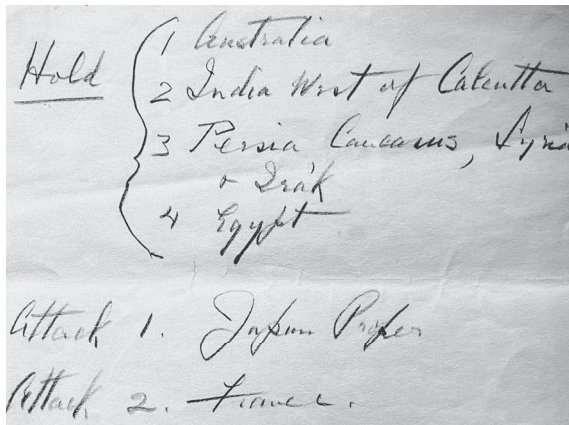 Hold
1 Australia
2 India West of Calcutta
3 Persia Caucasus, Syria
& Irak
4 Egypt
Attack 1. Japan Proper
Attack 2. France.